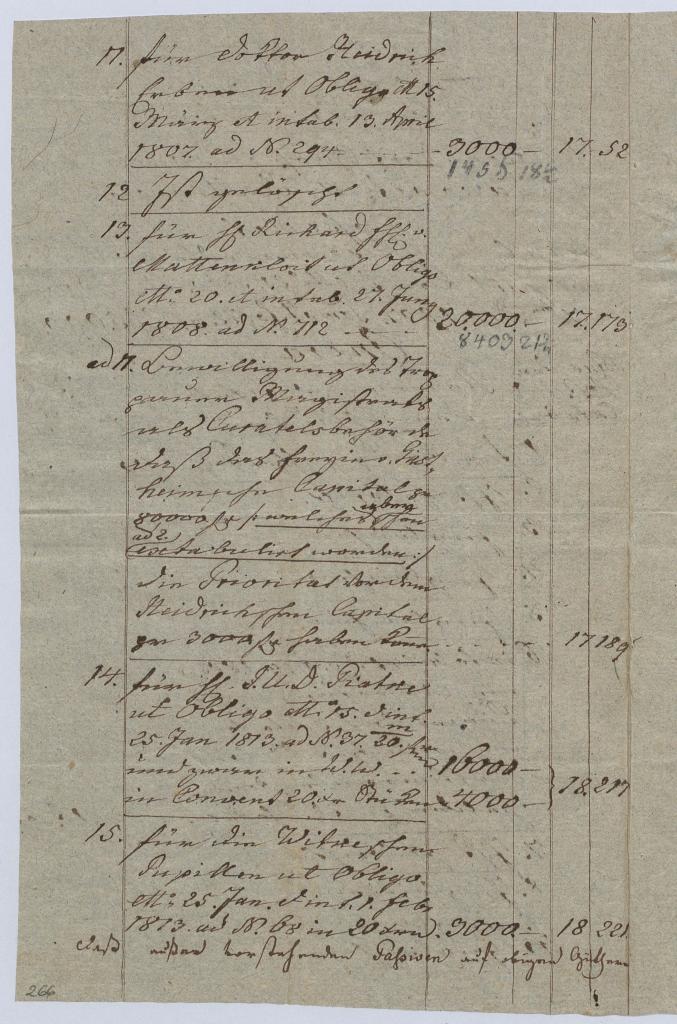 11. für Doktor Heidrich
Erben ut Obligo dtto 15.
März et intab. 13. April
1807. ad N. 294 3000 – 17. 52
1455 18
12 Ist gelöscht
13. für H Rickard v.
Mattencloit ut Obligo
dtto 20. et intab. 27. Juny
1808. ad N. 712 20.000 – 17. 173
8409 21
ad 11. Bewilligung des Trop
pauer Magistrats
als Curatelsbehörde
daß das
heimsche Capital pr
80000 f welches oben
ad 2.
extabulirt worden :/
die Priorität vor dem
Heidrichschen Capital
pr 3000 f haben kann 17 189
14. für H. J.U.D.
ut Obligo dtto 15. et int.
25. Jan 1813. ad N. 37. 20. m
und zwar in W.W. 16000 –
in Convent 20. xr Stücken 4000 – 18. 217
15. für die
Pupillen ut Obligo
dtto 25. Jan. et int. 1. Feb.
1813. ad N. 68 in 20 xrn 3000 – 18 221
daß außer vorstehenden Passiven auf obigen Güthern
266